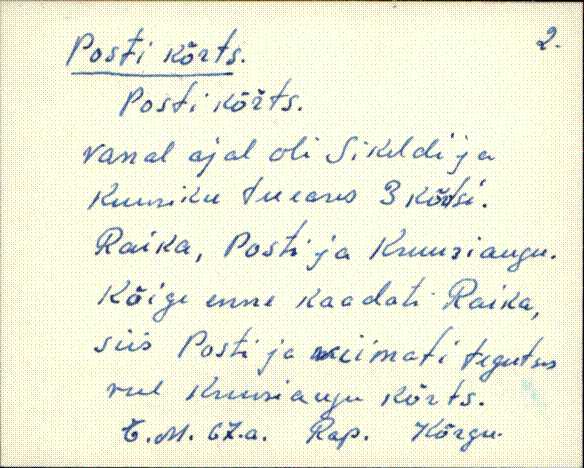 2.
Posti kõrts.
Posti kõrts.
vanal ajal oli Sikeldi ja
Kuusiku teeares 3 kõrtsi.
Raika, Posti ja Kruusiaugu.
Kõige enne kaadati Raika,
siis Posti ja viimati tegutses
veel Kruusiaugu kõrts.
E.M. 67.a. Rap. Kõrgu.